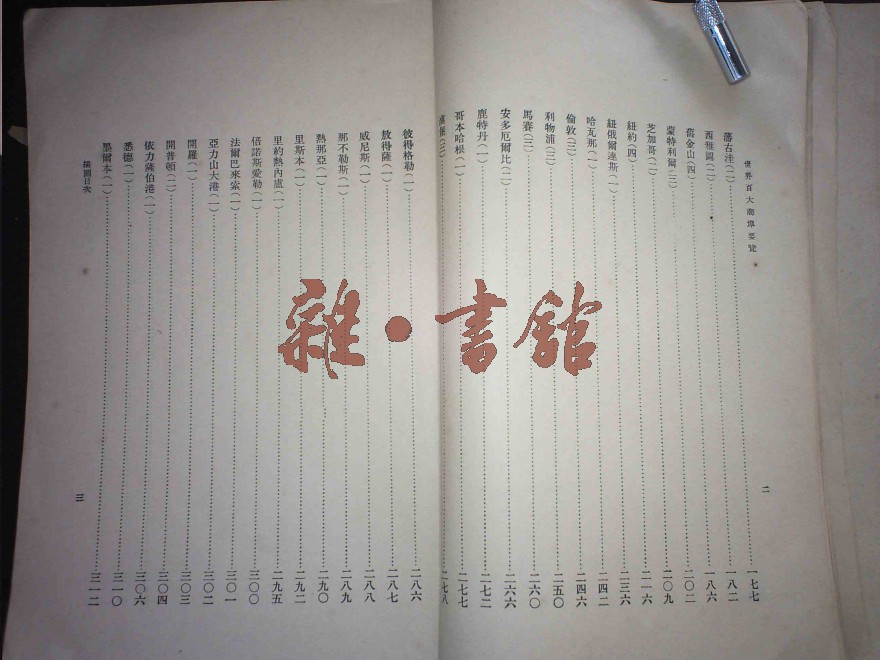 世界百大商埠要覽
二
右洼(二)……一七七
西雅圖(二)……一八二
舊金山(四)……一八六
蒙特利爾(三)……二〇二
芝加哥(二)……二〇九
紐約(四)……二一六
紐俄爾連斯(一)……二三六
哈瓦那(一)……二四二
倫敦(三)……二四六
利物浦(三)……二五〇
馬賽(三)……二六〇
安多厄爾比(二)……二六六
鹿特丹(一)……二七二
哥本哈根(一)……二七七
(三)……二七八
彼得格勒(一)……二八六
敖得薩(一)……二八七
威尼斯(一)……二八八
那不勒斯(一)……二八九
熱那亞(一)……二九〇
里斯本(一)……二九二
里約熱內盧(一)……二九五
倍諾斯愛勒(一)……三〇〇
法爾巴來索(一)……三〇一
亞力山大港(一)……三〇二
開羅(一)……三〇三
開普頓(二)……三〇四
依力薩伯港(一)……三〇六
悉德(一)……三一〇
墨爾本(一)……三一二
插圖目次
三
雜·書館